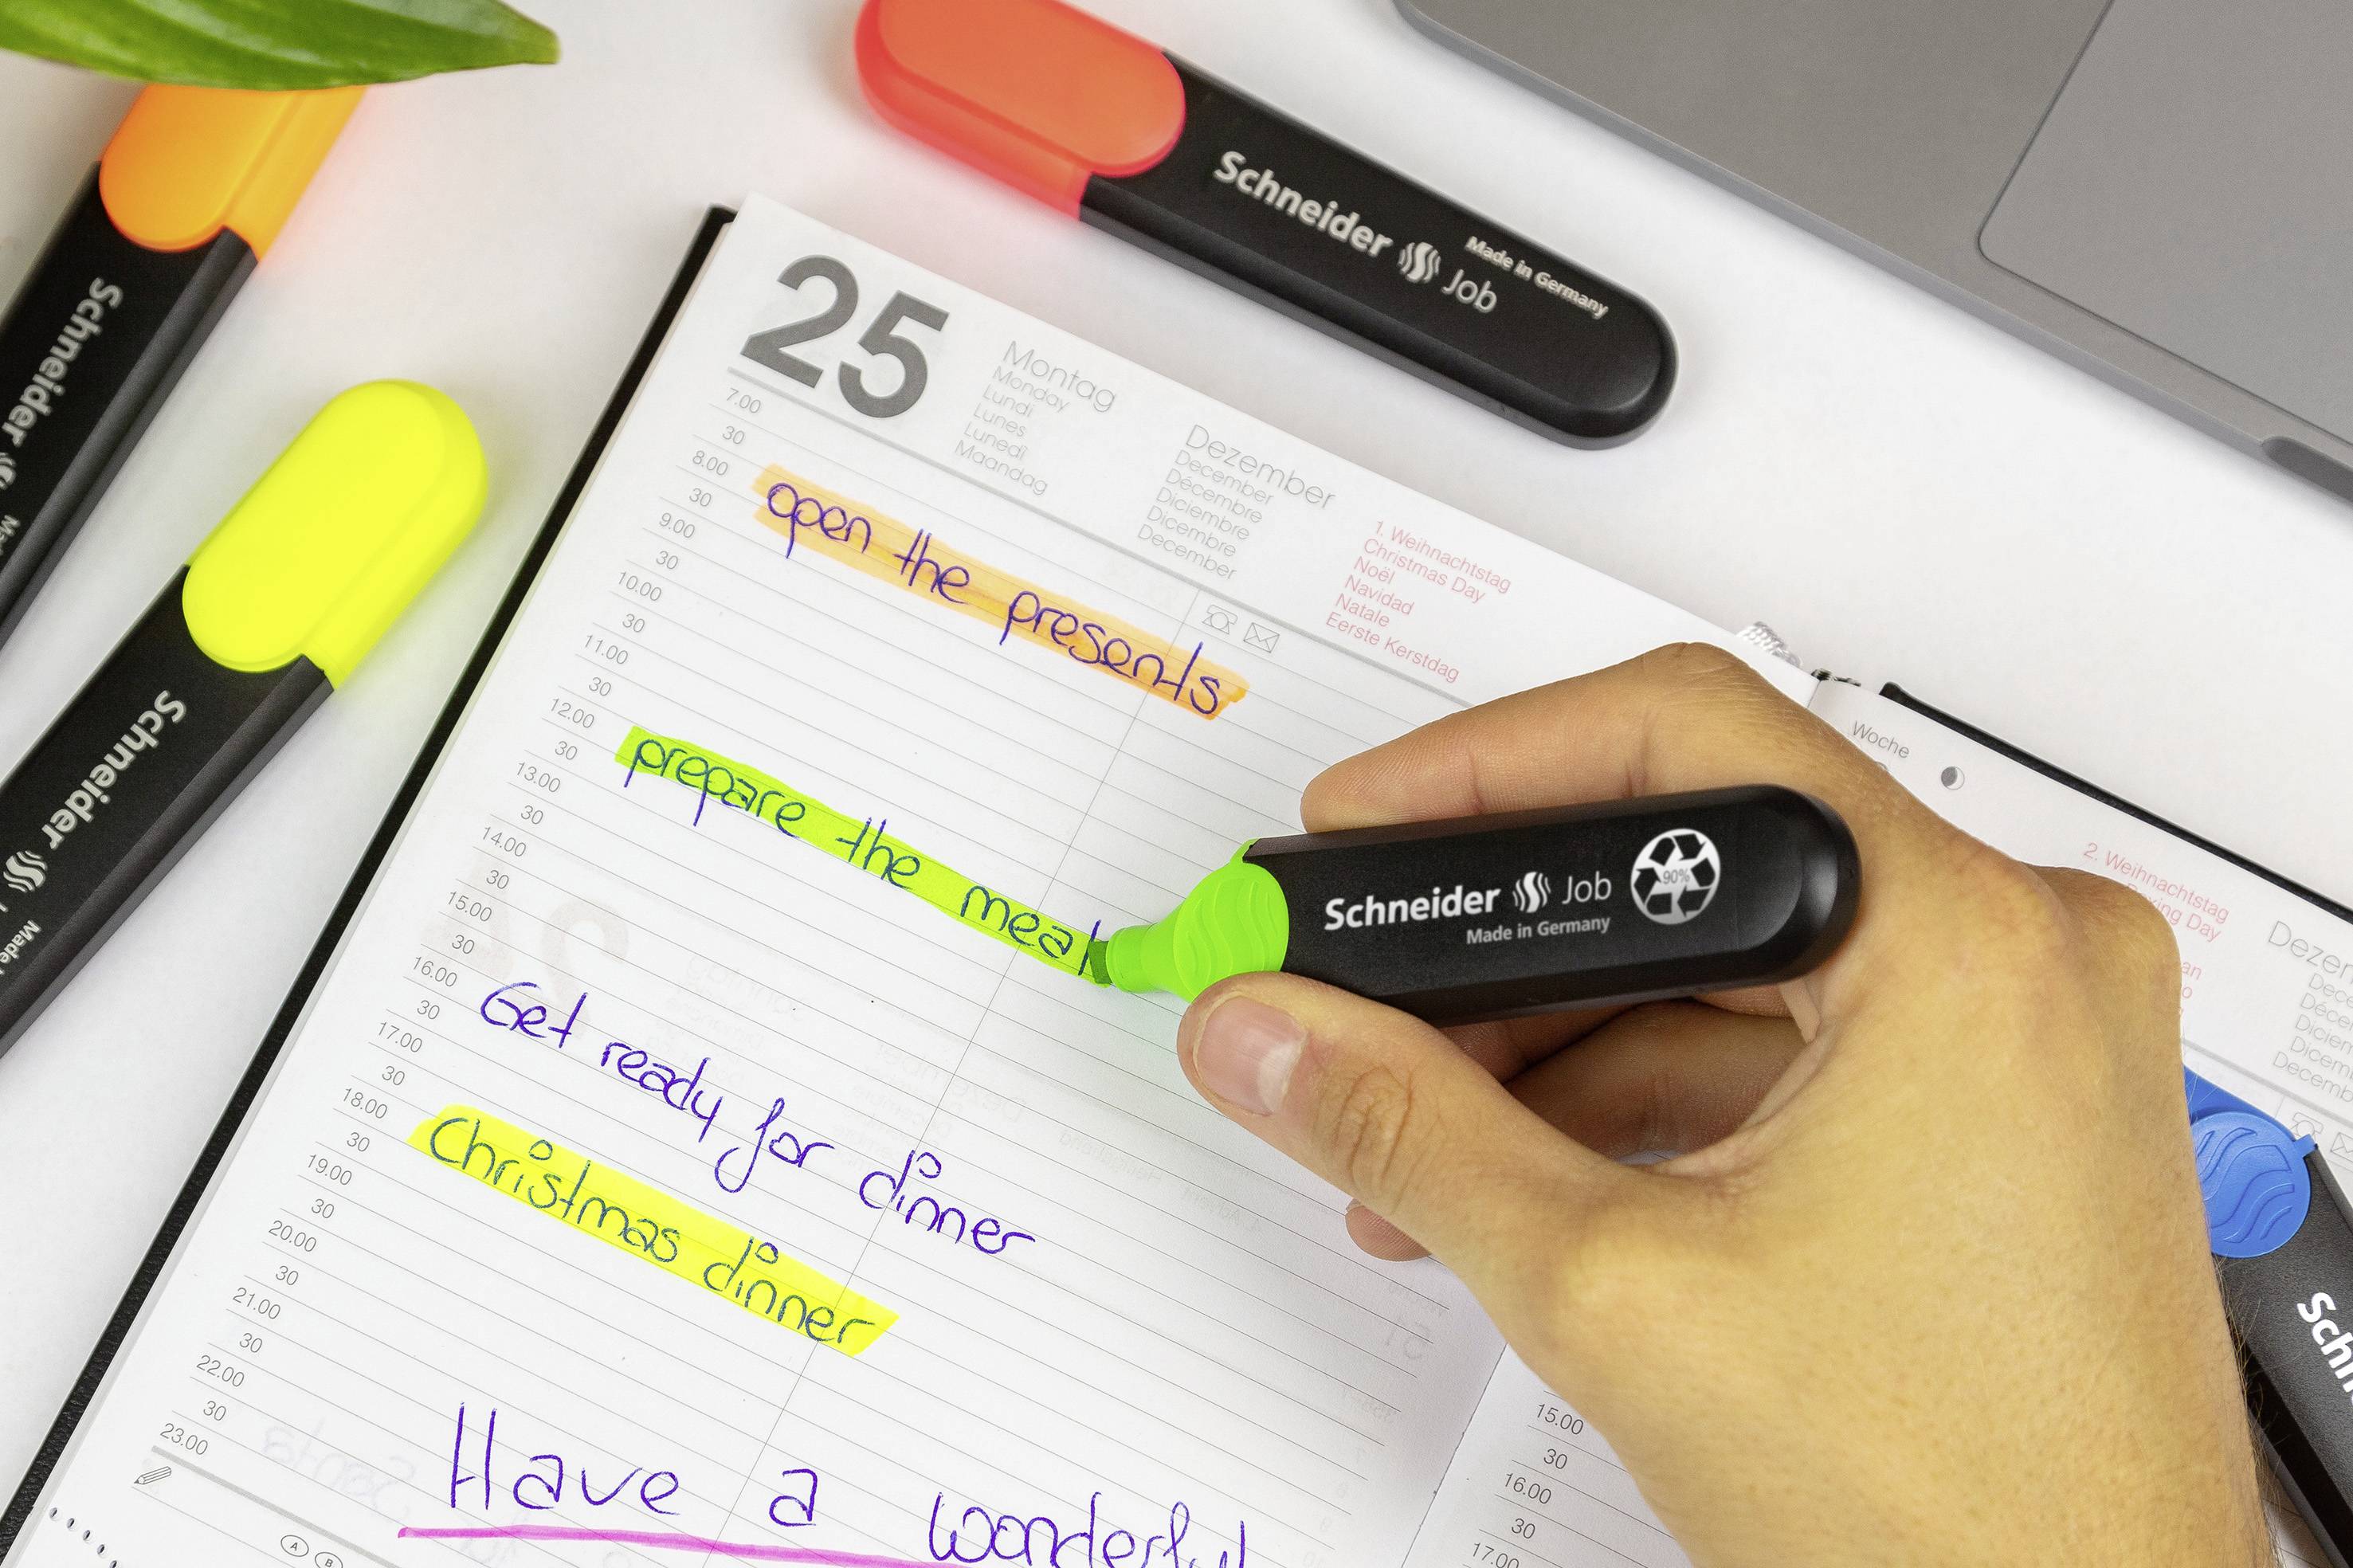 Schneider Job
Made in Germany
Schneider
Schneider
25
Montag
Monday
Lundi
Lunes
Lunedì
Maandag
Dezember
December
Décembre
Diciembre
Dicembre
December
1. Weihnachtstag
Christmas Day
Noël
Navidad
Natale
Eerste Kerstdag
7.00
30
8.00
30
open the presents
9.00
30
10.00
30
11.00
30
12.00
30
prepare the meal
13.00
30
14.00
30
15.00
30
16.00
30
Get ready for dinner
17.00
30
18.00
30
Christmas dinner
19.00
30
20.00
30
21.00
30
22.00
30
23.00
Have a wonderful
A B
Schneider Job 90%
Made in Germany
Woche
2. Weihnachtstag
15.00
30
16.00
30
17.00